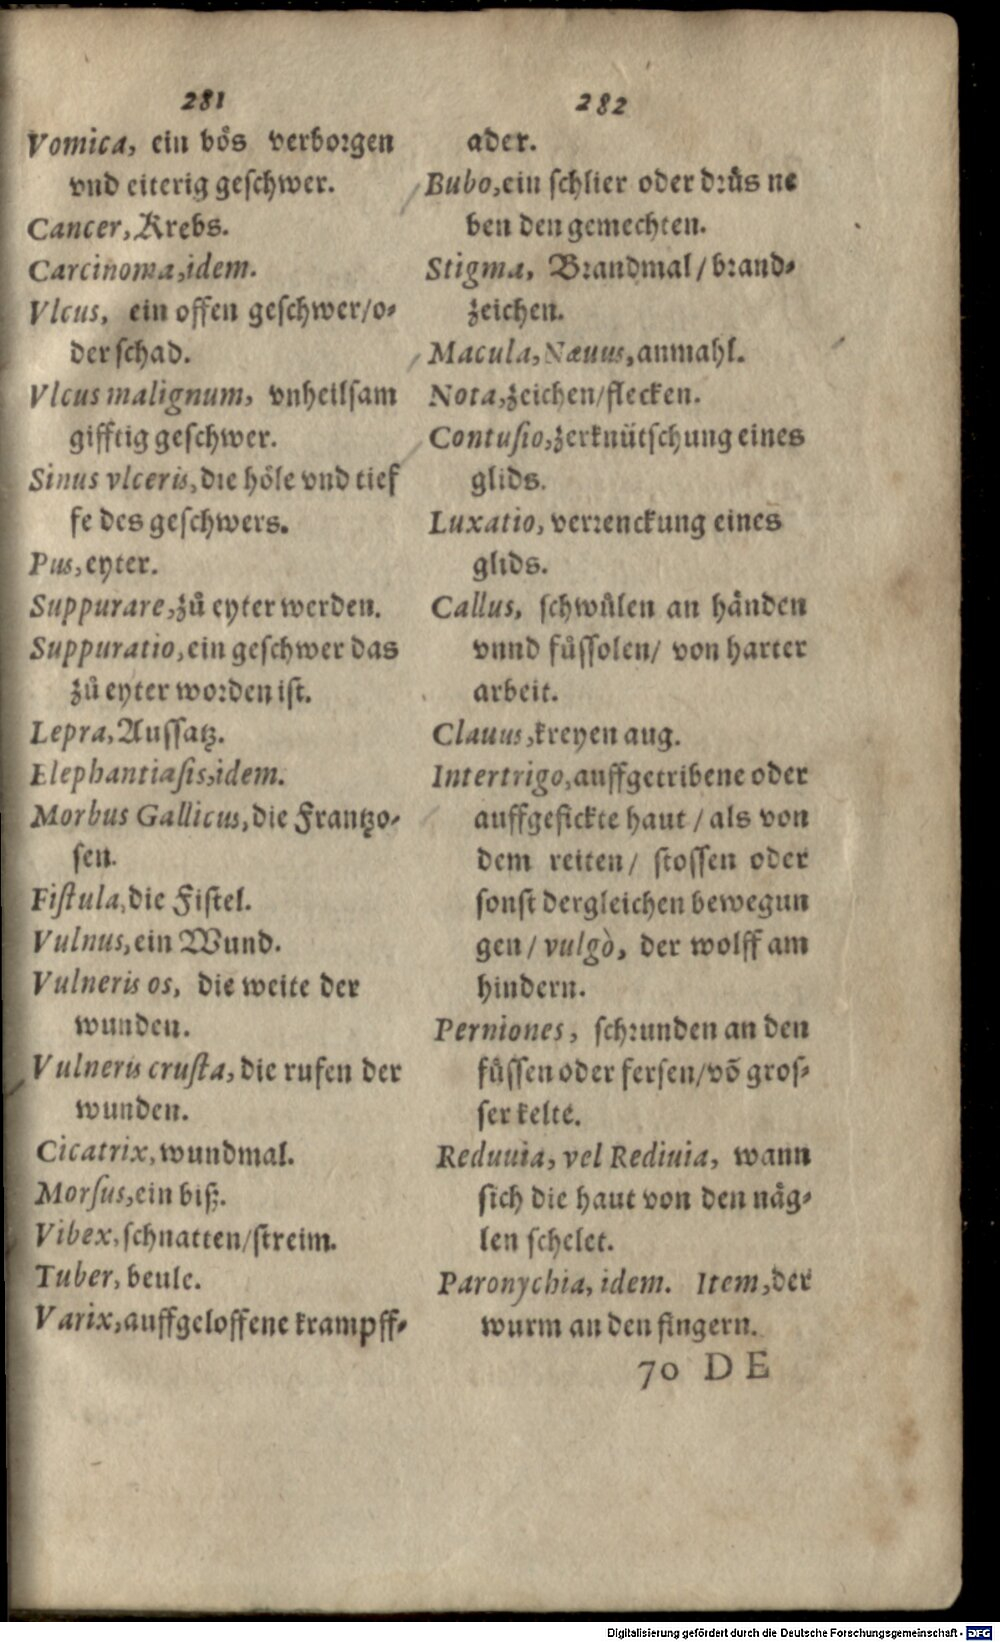 281
Vomica, ein bös verborgen
vnd eiterig geschwer.
Cancer, Krebs.
Carcinoma, idem.
Vlcus, ein offen geschwer/o-
der schad.
Vlcus malignum, vnheilsam
gifftig geschwer.
Sinus vlceris, die höle vnd tief
fe des geschwers.
Pus, eyter.
Suppurare, zů eyter werden.
Suppuratio, ein geschwer das
zů eyter worden ist.
Lepra, Aussatz.
Elephantiasis, idem.
Morbus Gallicus, die Frantzo-
sen.
Fistula, die Fistel.
Vulnus, ein Wund.
Vulneris os, die weite der
wunden.
Vulneris crusta, die rufen der
wunden.
Cicatrix, wundmal.
Morsus, ein biß.
Vibex, schnatten/streim.
Tuber, beule.
Varix, auffgeloffene krampff-
282
ader.
Bubo, ein schlier oder drůs ne
ben den gemechten.
Stigma, Brandmal/brand-
zeichen.
Macula, Nævus, anmahl.
Nota, zeichen/flecken.
Contusio, zerknütschung eines
glids.
Luxatio, verrenckung eines
glids.
Callus, schwülen an händen
vnnd füssolen/ von harter
arbeit.
Clauus, kreyen aug.
Intertrigo, auffgetribene oder
auffgefickte haut/ als von
dem reiten/ stossen oder
sonst dergleichen bewegun
gen/ vulgò, der wolff am
hindern.
Perniones, schrunden an den
füssen oder fersen/võ gros-
ser kelte.
Reduuia, vel Rediuia, wann
sich die haut von den näg-
len schelet.
Paronychia, idem. Item, der
wurm an den fingern.
70 DE
Digitalisierung gefördert durch die Deutsche Forschungsgemeinschaft - DFG